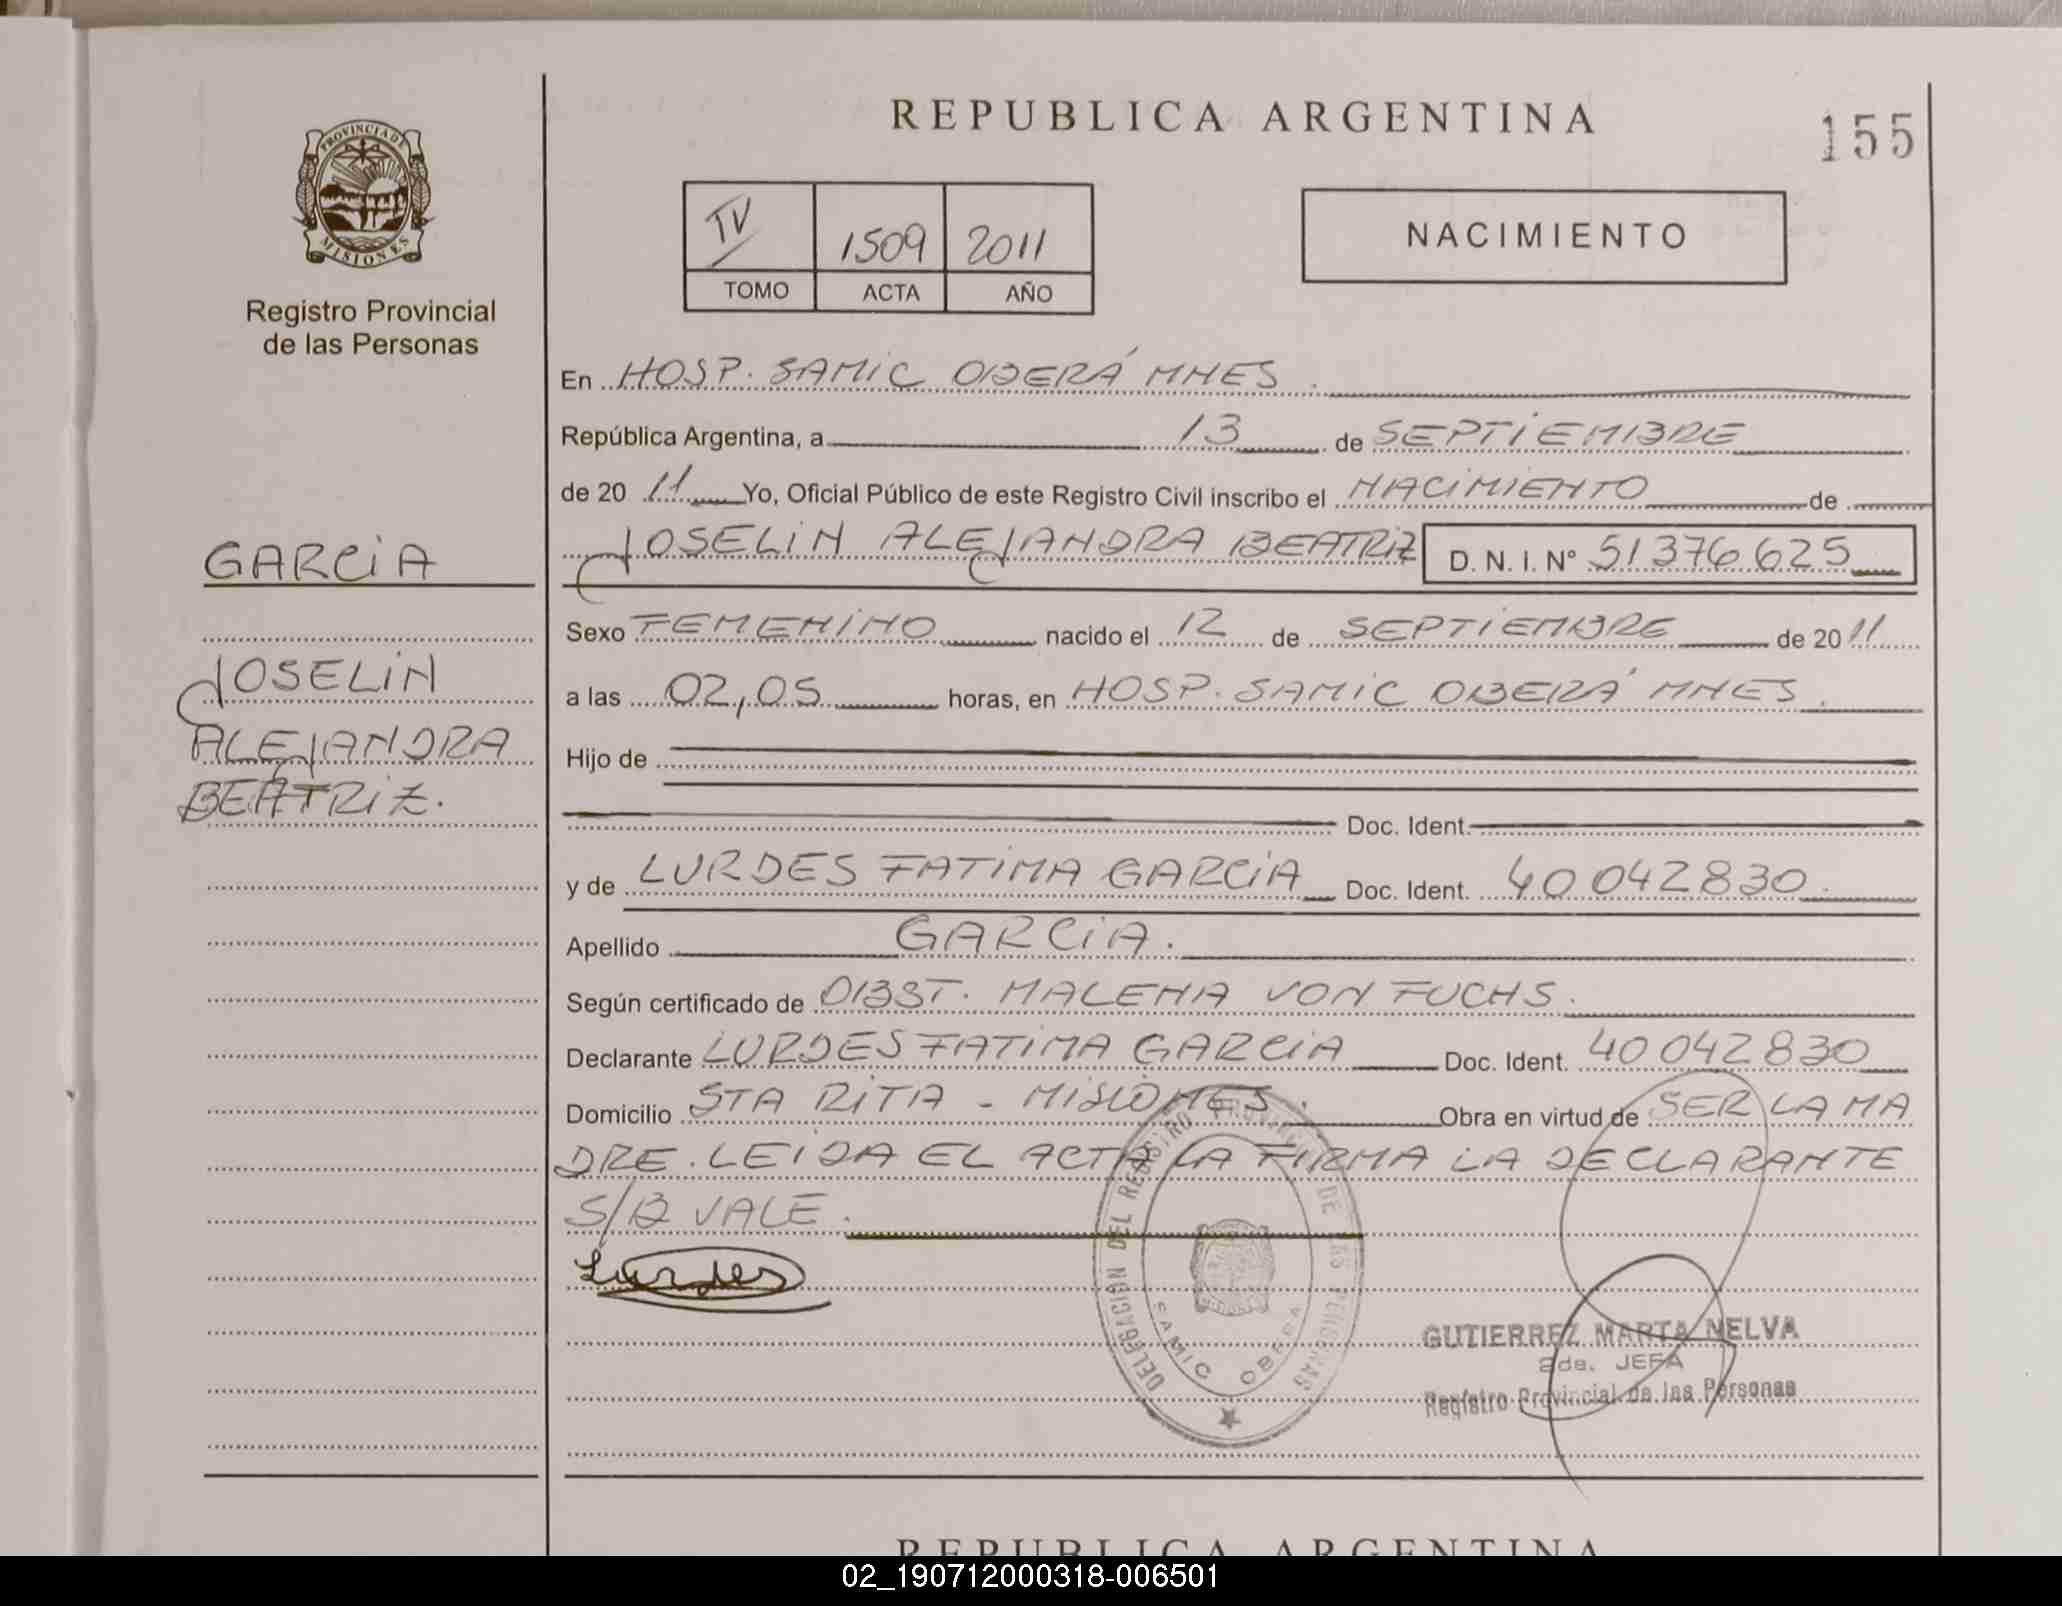 REPUBLICA ARGENTINA
155
PROVINCIA DE
MISIONES
Registro Provincial
de las Personas
IV 1509 2011
TOMO ACTA AÑO
NACIMIENTO
En HOSP. SAMIC OBERÁ MNES.
República Argentina, a 13 de SEPTIEMBRE
de 20 11 Yo, Oficial Público de este Registro Civil inscribo el NACIMIENTO de
JOSELIN ALEJANDRA BEATRIZ D. N. I. N° 51376625
GARCIA
JOSELIN
ALEJANDRA
BEATRIZ.
Sexo FEMENINO nacido el 12 de SEPTIEMBRE de 20 11
a las 02,05 horas, en HOSP. SAMIC OBERÁ MNES.
Hijo de
Doc. Ident.
y de LURDES FATIMA GARCIA Doc. Ident. 40042830.
Apellido GARCIA.
Según certificado de OBST. MALENA VON FUCHS.
Declarante LURDES FATIMA GARCIA Doc. Ident. 40042830
Domicilio STA RITA - MISIONES. Obra en virtud de SER LA MA
DRE. LEIDA EL ACTA LA FIRMA LA DECLARANTE
S/B VALE.
Lurdes
DELEGACION DEL REGISTRO PROVINCIAL DE LAS PERSONAS
SAMIC OBERA
GUTIERREZ MARTA NELVA
2da. JEFA
Registro Provincial de las Personas
REPUBLICA ARGENTINA
02_190712000318-006501